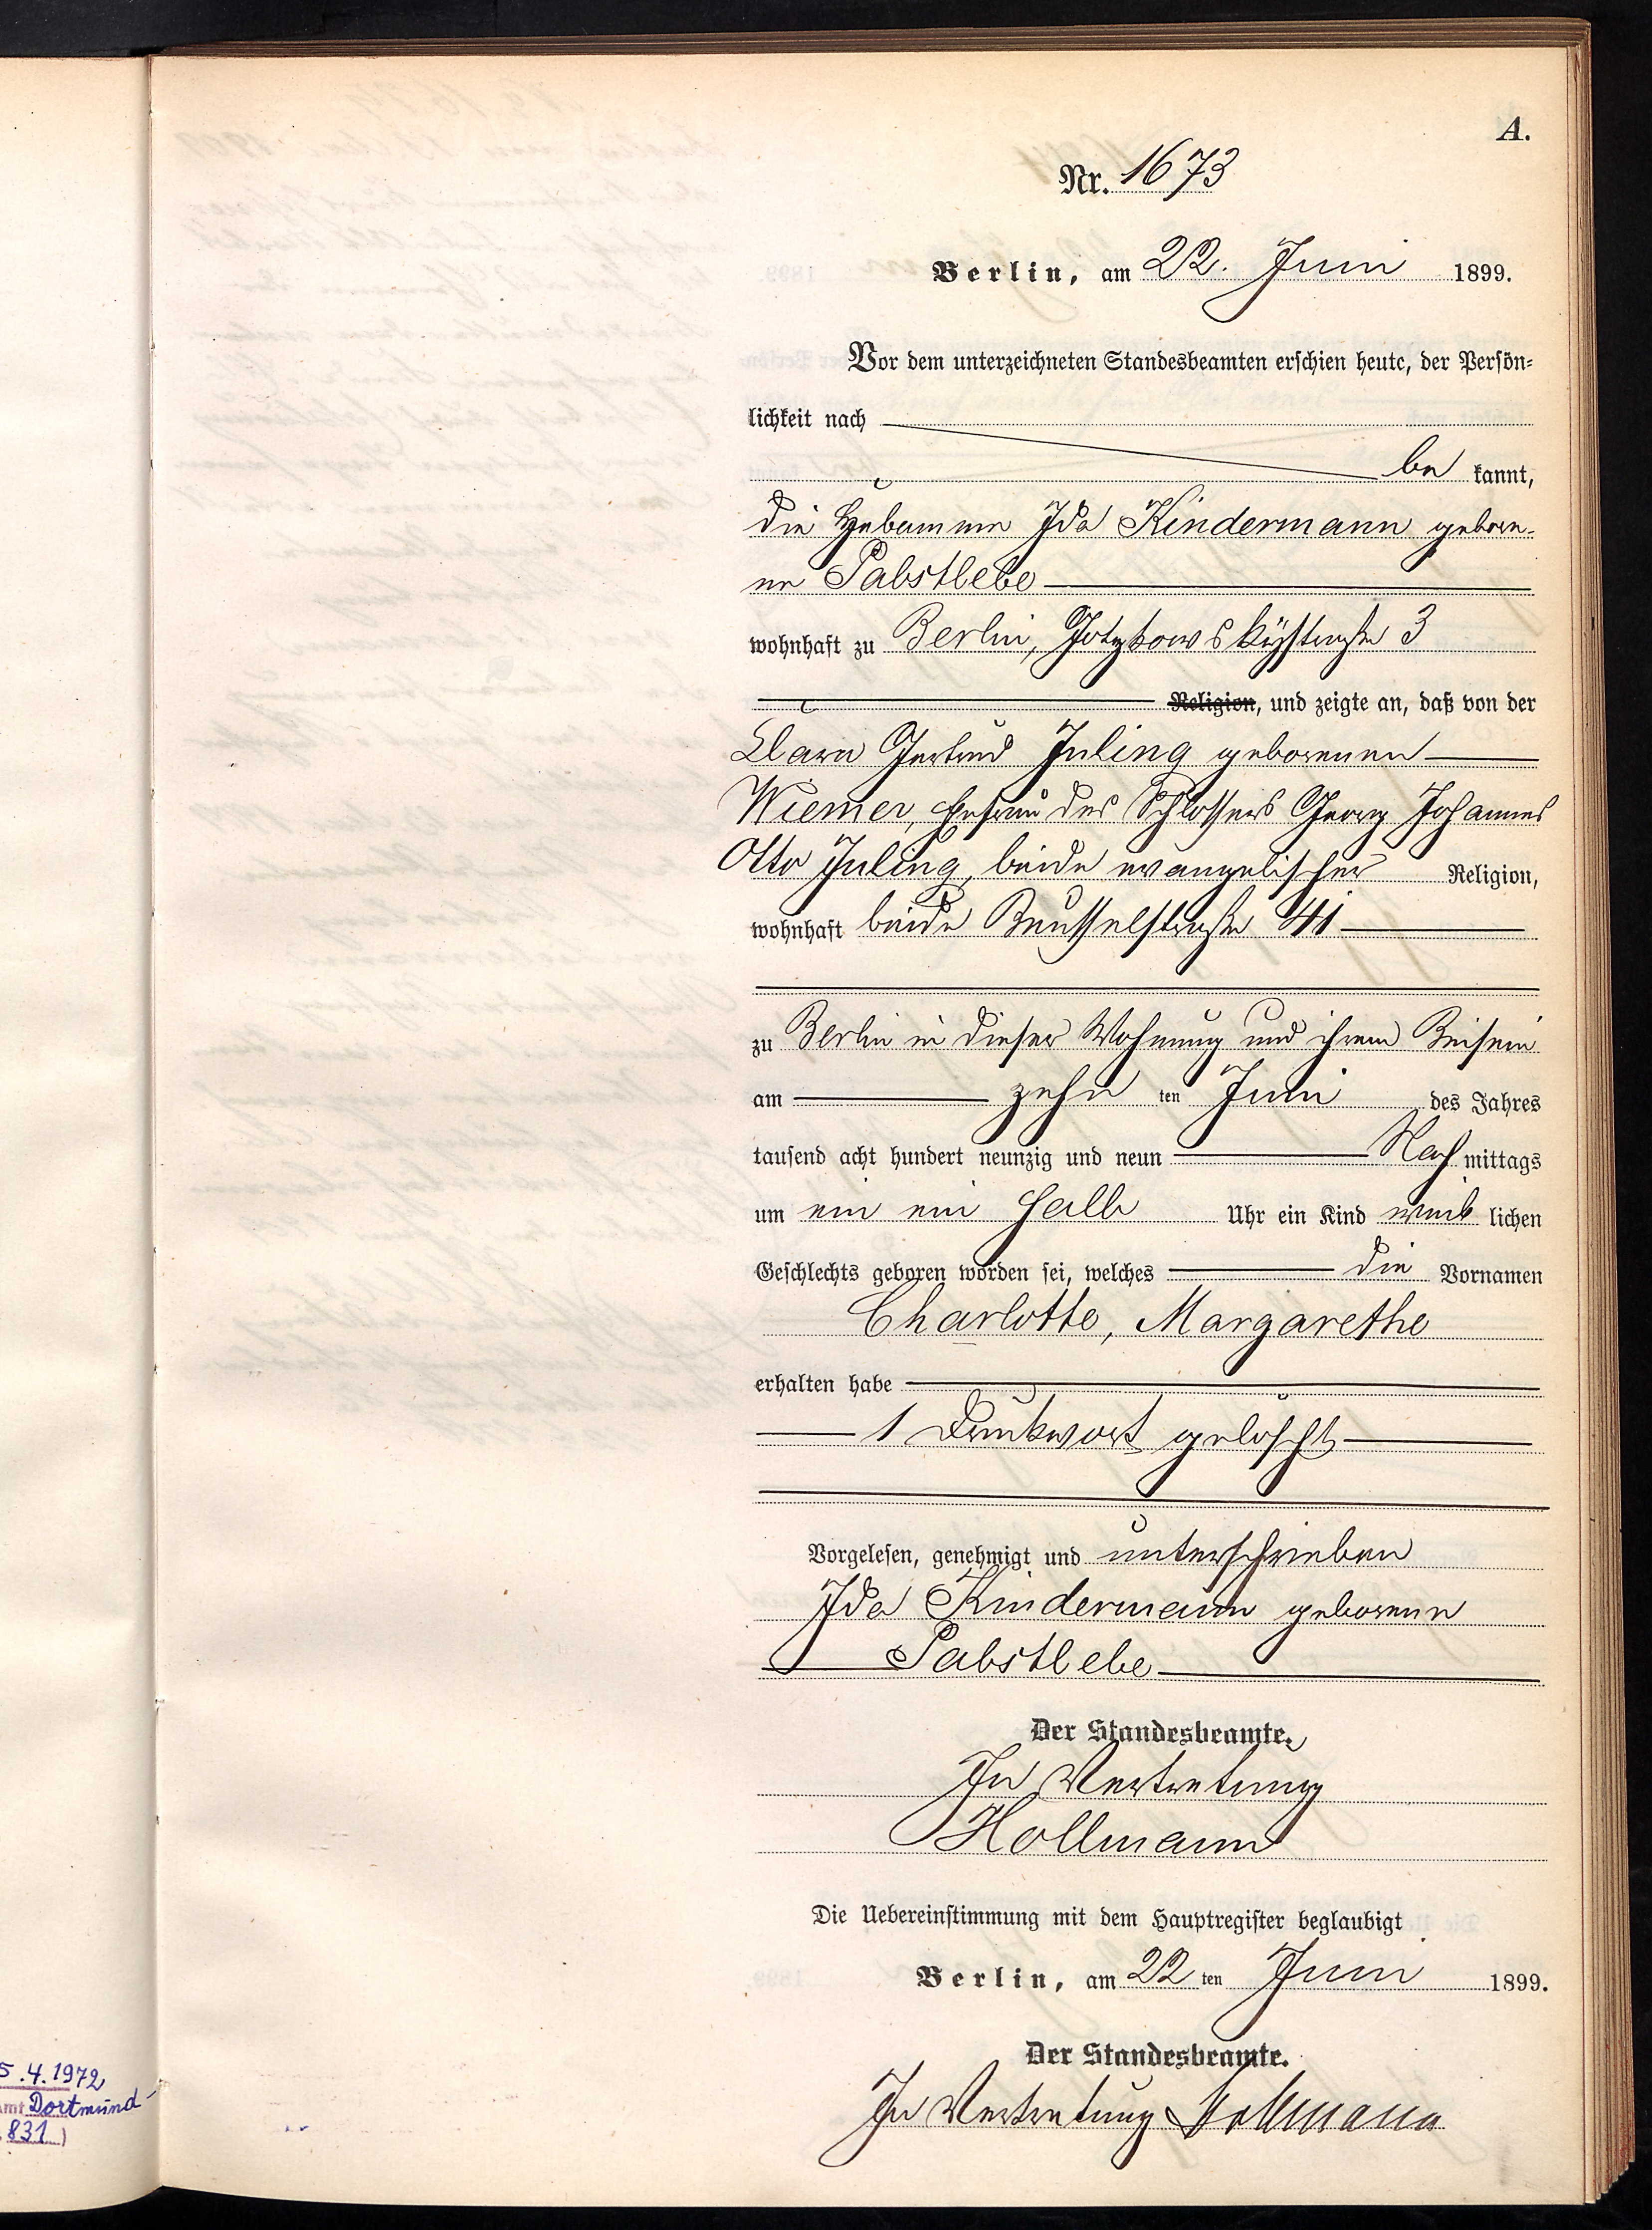 A.
Nr. 1673
Berlin, am 22. Juni 1899.
Vor dem unterzeichneten Standesbeamten erschien heute, der Persön-
lichkeit nach
be kannt,
die Hebamme Ida Kindermann gebore-
ne Pabstlebe
wohnhaft zu Berlin, Gotzkowskystraße 3
Religion, und zeigte an, daß von der
Clara Gertrud Juling geborenen
Wiemer, Ehefrau des Schlossers Georg Johannes
Otto Juling, beide evangelischer Religion,
wohnhaft beide Beusselstraße 41
zu Berlin in dieser Wohnung und ihrem Beisein
am zehn ten Juni des Jahres
tausend acht hundert neunzig und neun Nach mittags
um ein ein halb Uhr ein Kind weib lichen
Geschlechts geboren worden sei, welches die Vornamen
Charlotte, Margarethe
erhalten habe
1 Druckwort gelöscht
Vorgelesen, genehmigt und unterschrieben
Ida Kindermann geborene
Pabstlebe
Der Standesbeamte.
In Vertretung
Hollmann
Die Uebereinstimmung mit dem Hauptregister beglaubigt
Berlin, am 22 ten Juni 1899.
Der Standesbeamte.
In Vertretung Hollmann
5.4.1972
amt Dortmund-
831)